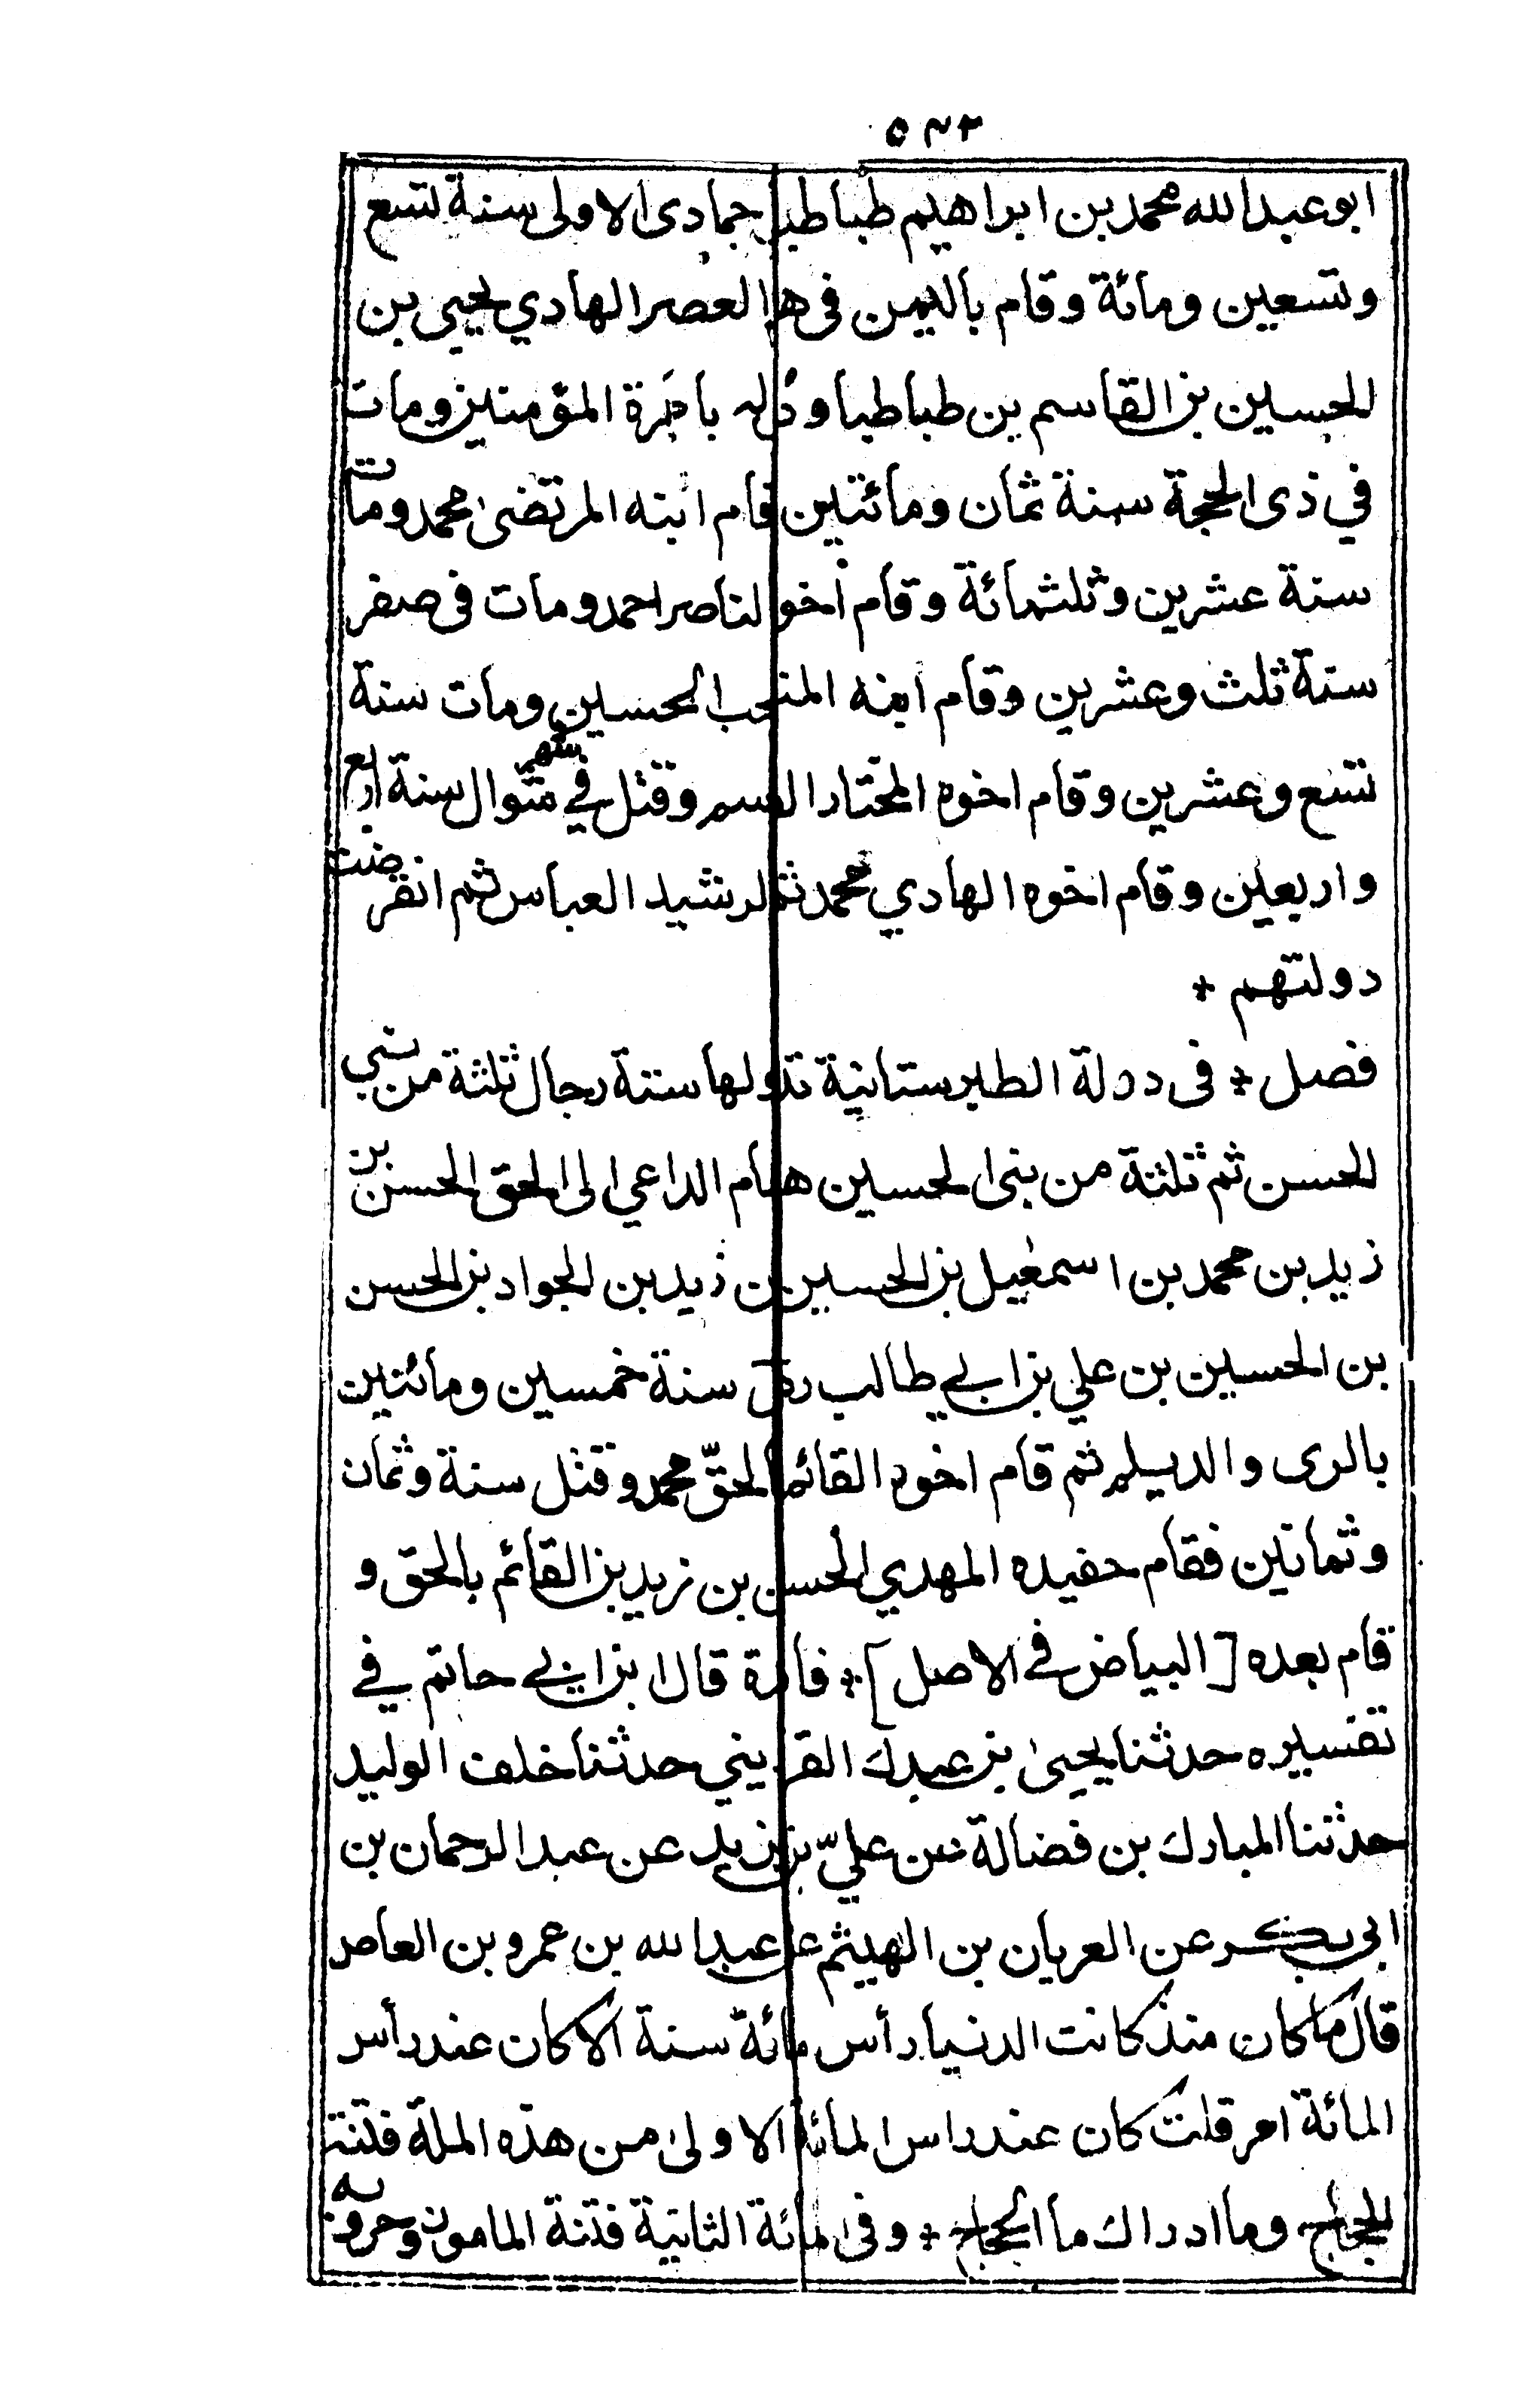 ٥٣٢
ابو عبد الله محمد بن ابراهيم طباطبا جمادى الاولى سنة تسع
وتسعين ومائة وقام باليمن فى هذا العصر الهادي يحيى بن
الحسين بن القاسم بن طباطبا ودعي له بامرة المؤمنين ومات
في ذى الحجة سنة ثمان ومائتين قام ابنه المرتضى محمد ومات
سنة عشرين وثلثمائة وقام أخو الناصر احمد ومات فى صفر
سنة ثلث وعشرين وقام ابنه المنتجب الحسين ومات سنة
تسع وعشرين وقام اخوه المختار القسم وقتل في شهر شوال سنة اربع
واربعين وقام اخوه الهادي محمد ثم الرشيد العباس ثم انقرضت
دولتهم *
فصل * فى دولة الطبرستانية تداولها ستة رجال ثلثة من بني
الحسن ثم ثلثة من بنى الحسين هشام الداعي الى الحق الحسن بن
زيد بن محمد بن اسمعيل بن الحسين بن زيد بن الجواد بن الحسن
بن الحسين بن علي بن ابي طالب رض سنة خمسين ومائتين
بالرى والديلم ثم قام اخوه القائم بالحقّ محمد وقتل سنة وثمان
وثمانين فقام حفيده المهدي الحسن بن زيد بن القائم بالحق و
قام بعده [البياض في الاصل] * فائدة قال ابن ابي حاتم في
تفسيره حدثنا يحيى بن عبدك القزويني حدثنا خلف الوليد
حدثنا المبارك بن فضالة عن عليّ بن زيد عن عبد الرحمان بن
ابي بكر عن العريان بن الهيثم عن عبد الله بن عمرو بن العاص
قال ما كان منذ كانت الدنيا رأس مائة سنة الا كان عند رأس
المائة امر قلت كان عند راس المائة الاولى من هذه الملة فتنة
الحجاج وما ادراك ما الحجاج * وفى المائة الثانية فتنة المامون وحروبه